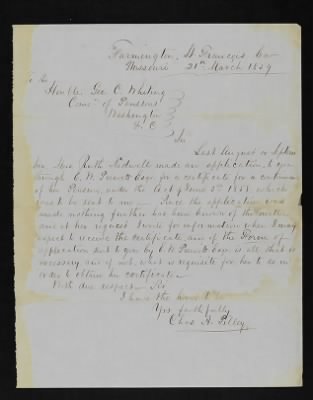 Farmington, St Francois Co
Missouri 21st March 1859
To the
Honble Geo. C. Whiting
Comr of Pensions
Washington
D C
Sir
Last August or Septem
ber Mrs Ruth Kidwell made an application to you
through C. W. Esqr for a certificate for a continuan
of her Pension under the Act of June 3rd 1858 which
was to be sent to me — Since the application was
made nothing further has been known of the matter
and at her request I write for information when I may
expect to receive the certificate, and if the Form of
application sent to you by C W Esqr is all that is
necessary and if not, what is requisite for her to do in
order to obtain her certificate —
With due respect Sir
I have the honor to be
Yrs faithfully
Chas A. Pilley